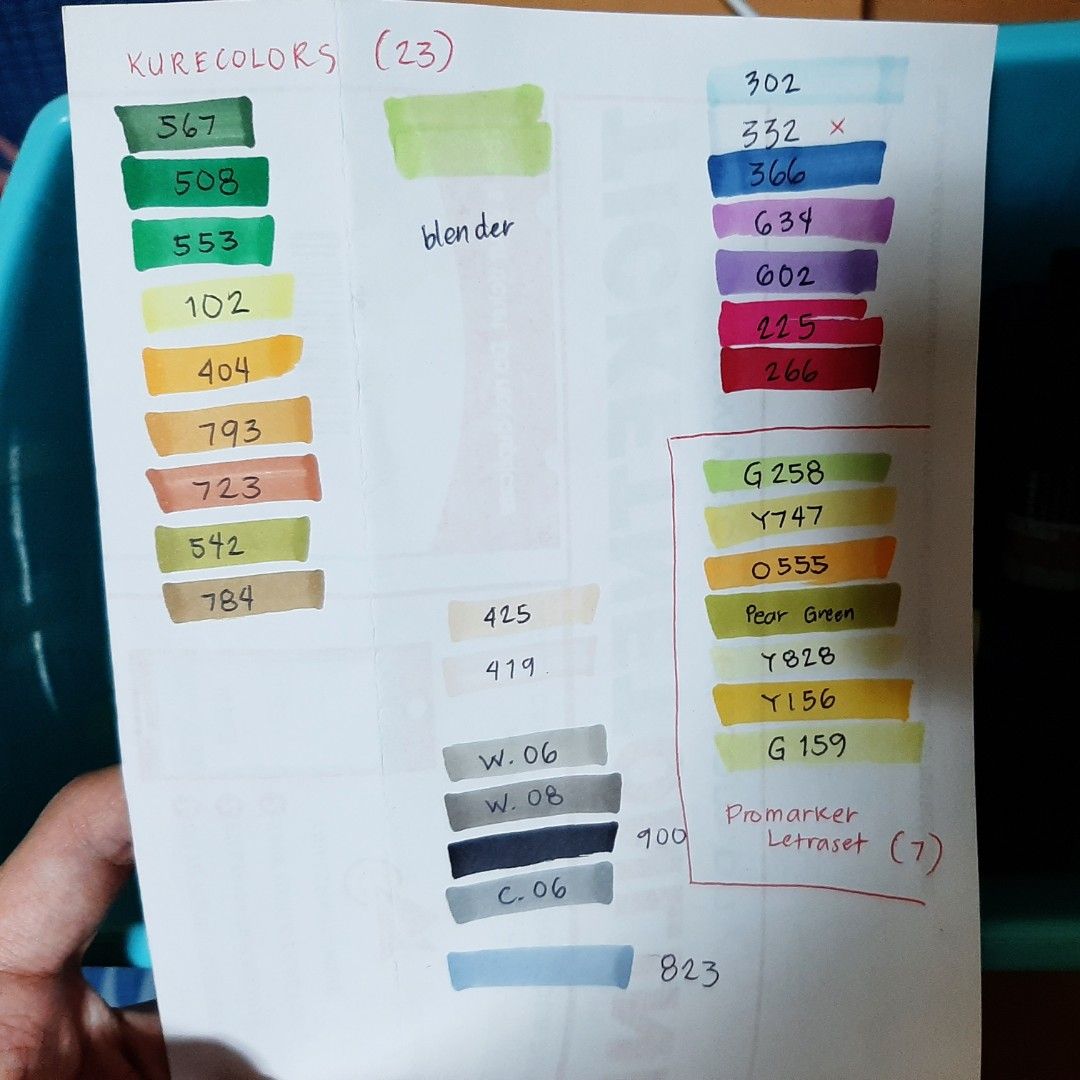 KURECOLORS (23)
567
508
553
102
404
793
723
542
784
blender
425
419
W. 06
W. 08
900
C. 06
823
302
332 x
366
634
602
225
266
G 258
Y747
O 555
Pear Green
Y828
Y156
G 159
Promarker
Letraset (7)